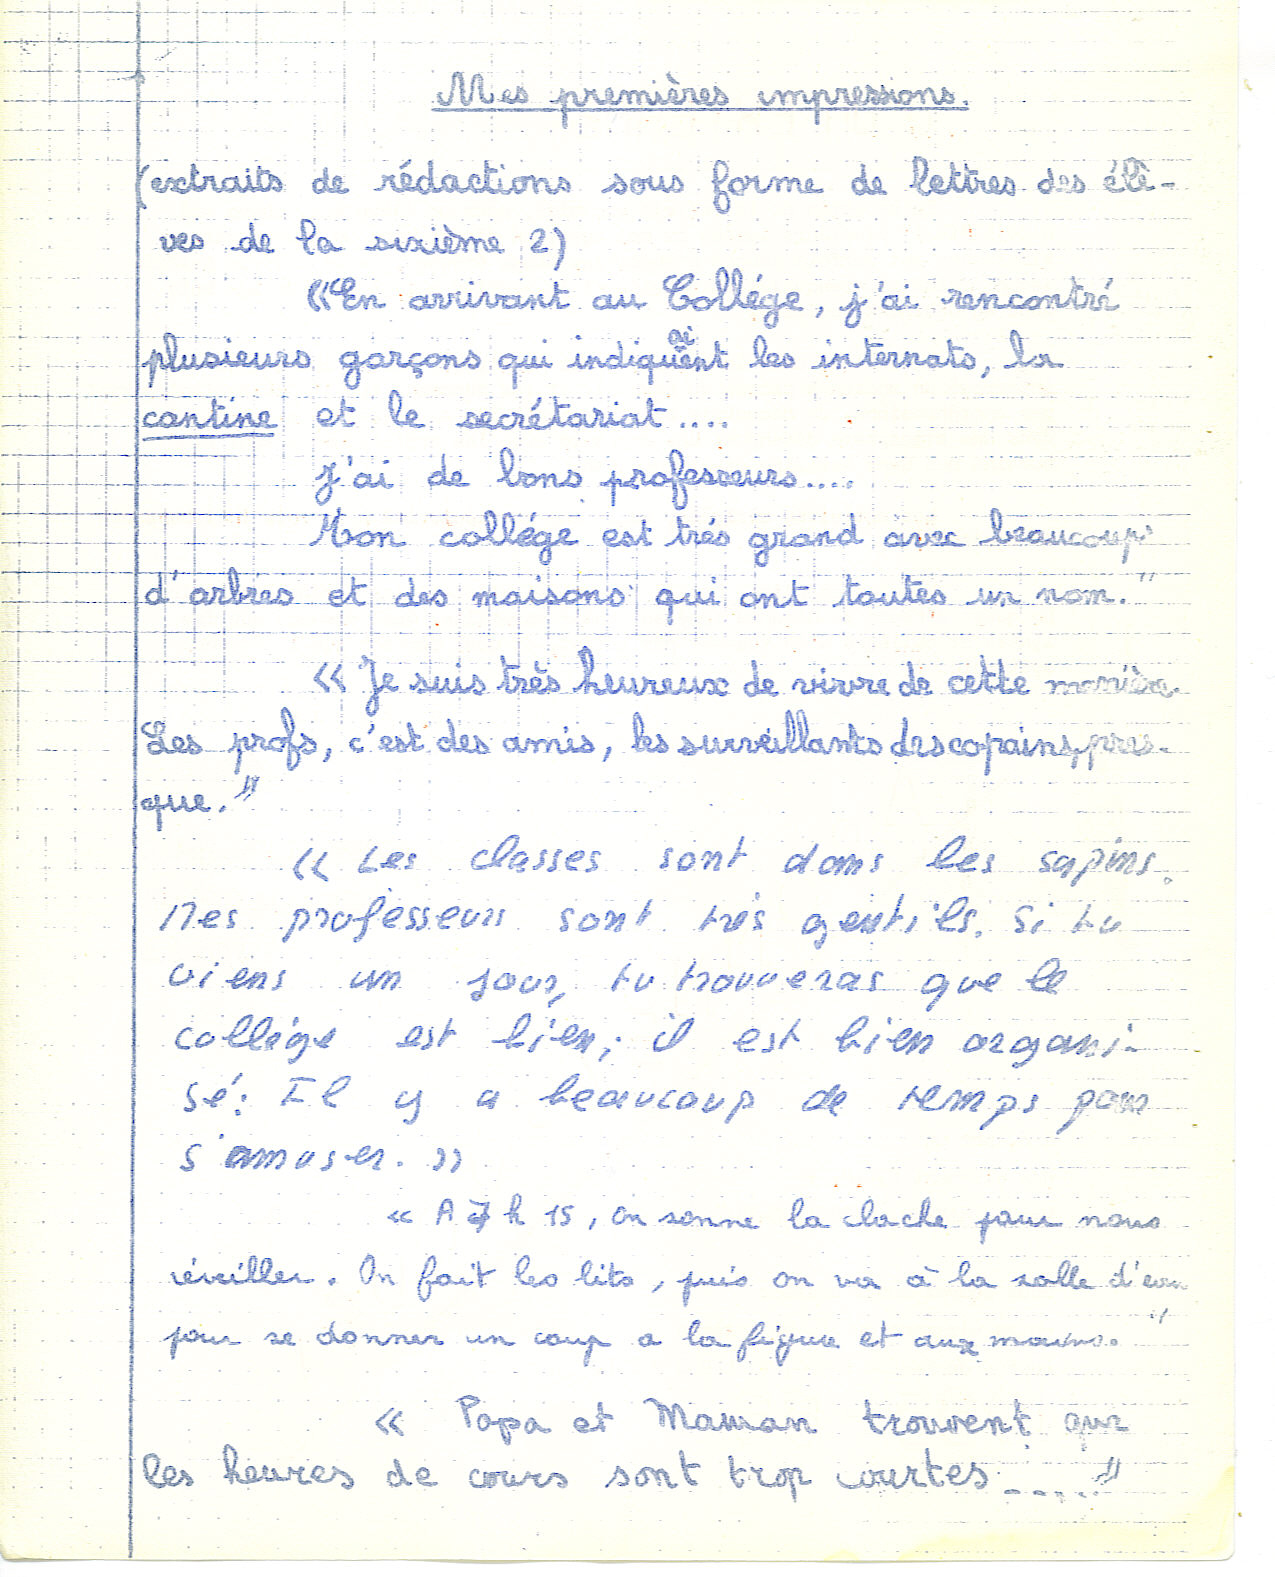 Mes premières impressions.
(extraits de rédactions sous forme de lettres des élè-
ves de la sixième 2)
"En arrivant au Collége, j'ai rencontré
plusieurs garçons qui indiquaient les internats, la
cantine et le secrétariat....
J'ai de bons professeurs....
Mon collége est trés grand avec beaucoup
d'arbres et des maisons qui ont toutes un nom."
« Je suis très heureux de vivre de cette manière.
Les profs, c'est des amis, les surveillants des copains, pres-
que."
« Les classes sont dans les sapins.
Mes professeurs sont très gentils. Si tu
viens un jour, tu trouveras que le
collége est bien, il est bien organi-
sé: Il y a beaucoup de temps pour
s'amuser. »
« A 7 h 15, on sonne la cloche pour nous
réveiller. On fait les lits, puis on va à la salle d'eau
pour se donner un coup a la figure et aux mains."
« Papa et Maman trouvent que
les heures de cours sont trop courtes....."